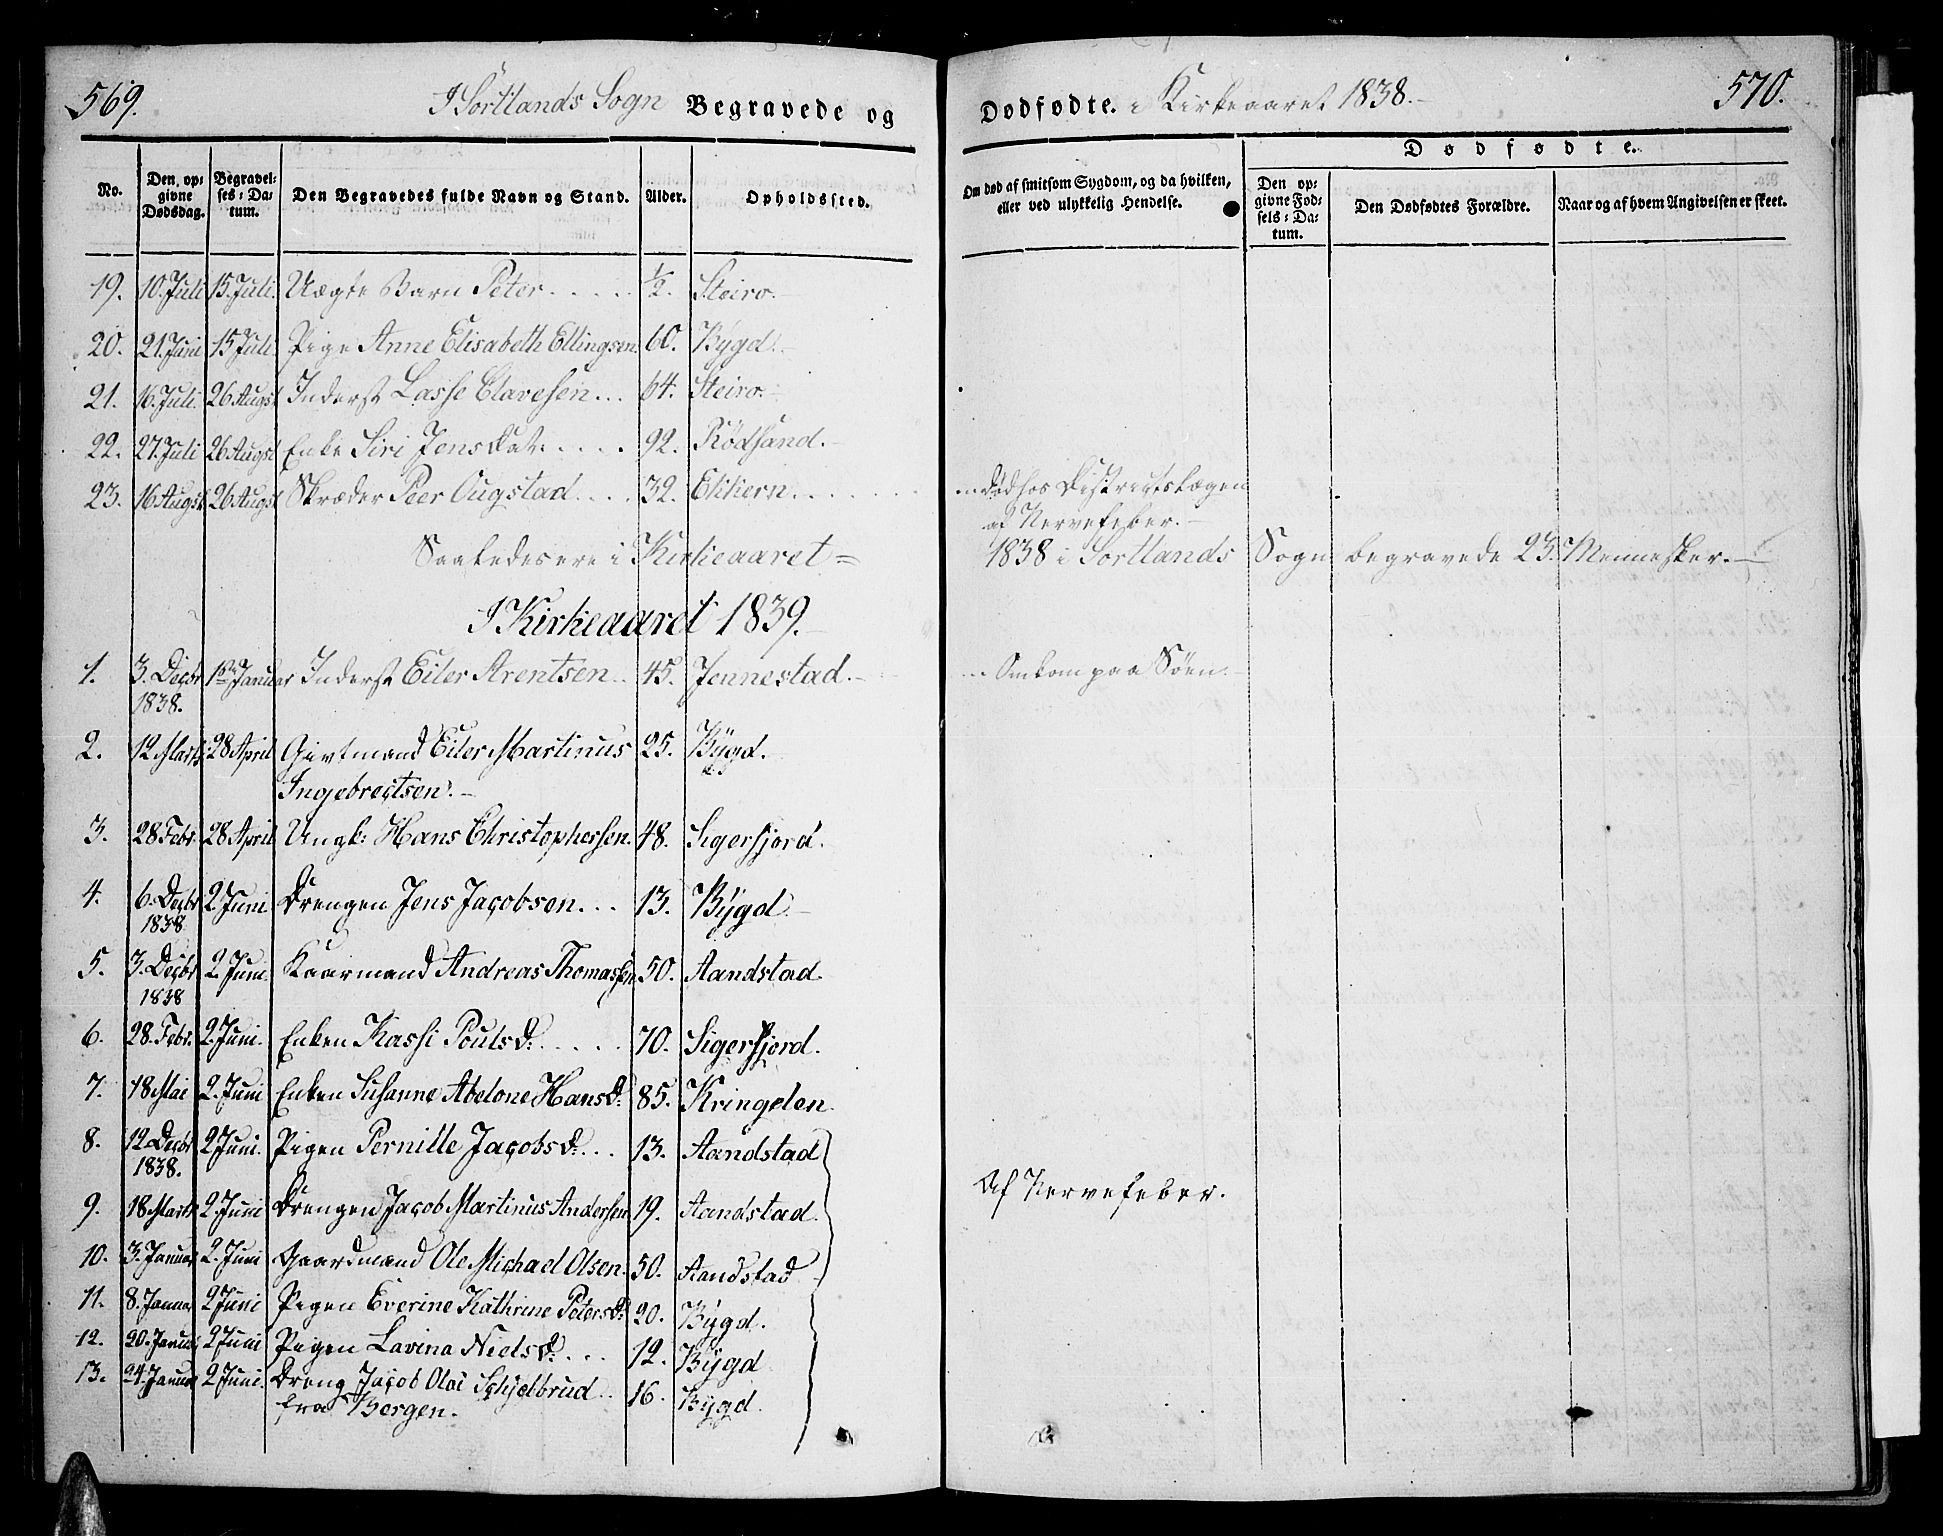 569.
I Sortlands Sogn Begravede og
Dødfødte. i Kirkeaaret 1838.
570.
No.
Den opgivne Dødsdag.
Begravelses-Datum.
Den Begravedes fulde Navn og Stand.
Alder.
Opholdssted.
Om død af smitsom Sygdom, og da hvilken, eller ved ulykkelig Hendelse.
Dødfødte.
Den opgivne Fødsels-Datum.
Den Dødfødtes Forældre.
Naar og af hvem Angivelsen er skeet.
19. 10. Juli 15. Juli. Uægte Barn Peter..... ½. Steiro.
20. 21. Juni 15 Juli Pige Anne Elisabeth Ellingsen. 60. Bÿgd.
21. 16. Juli. 26 Augst Inderst Lasse Clavesen... 64. Steiro.
22. 27. Juli 26 Augst Enke Siri Jensdat..... 92. Rødsand.
23. 16 Augst 26 Augst Skræder Peer Ougstad.... 32. Ekkern....... Død hos Districtslægen
af Nervefeber.
Saaledes ere i Kirkeaaret = 1838 i Sortlands Sogn begravede 23. Mennesker.
I Kirkeaaret 1839.
1. 3. Decbr 1ste Januar Inderst Eiler Arentsen.. 45. Jennestad. Omkom paa Søen.
1838.
2. 12 Marts 28 April Givtmand Eiler Martinus 25. Bÿgd.
Ingebrectsen.
3. 28 Febr. 28 April Ungk: Hans Christophersen. 48. Sigerfjord.
4. 6. Decbr 2 Juni Drengen Jens Jacobsen... 13. Bÿgd
1838
5. 3. Decbr 2. Juni. Kaarmand Andreas Thomassen 50. Aandstad.
1838
6. 28. Febr. 2. Juni. Enken Kassi Poulsd:..... 70. Sigerfjord.
7. 18 Mai 2. Juni Enken Susanne Abelone Hansd: 85. Kringelen.
8. 12 Decbr 2 Juni. Pigen Pernille Jacobsd:... 13. Aandstad
1838.
9. 18 Marts 2. Juni Drengen Jacob Martinus Andersen 19. Aandstad. Af Nervefeber.
10. 3. Januar 2. Juni Gaardmand Ole Michael Olsen. 50. Aandstad
11. 8. Januar 2 Juni Pigen Everine Kathrine Petersd: 20. Bÿgd.
12. 20. Januar 2 Juni Pigen Lavina Nielsd.... 12. Bÿgd
13. 24. Januar 2 Juni. Dreng Jacob Olai Schjelbrud.. 16. Bÿgd.
fra Bergen.